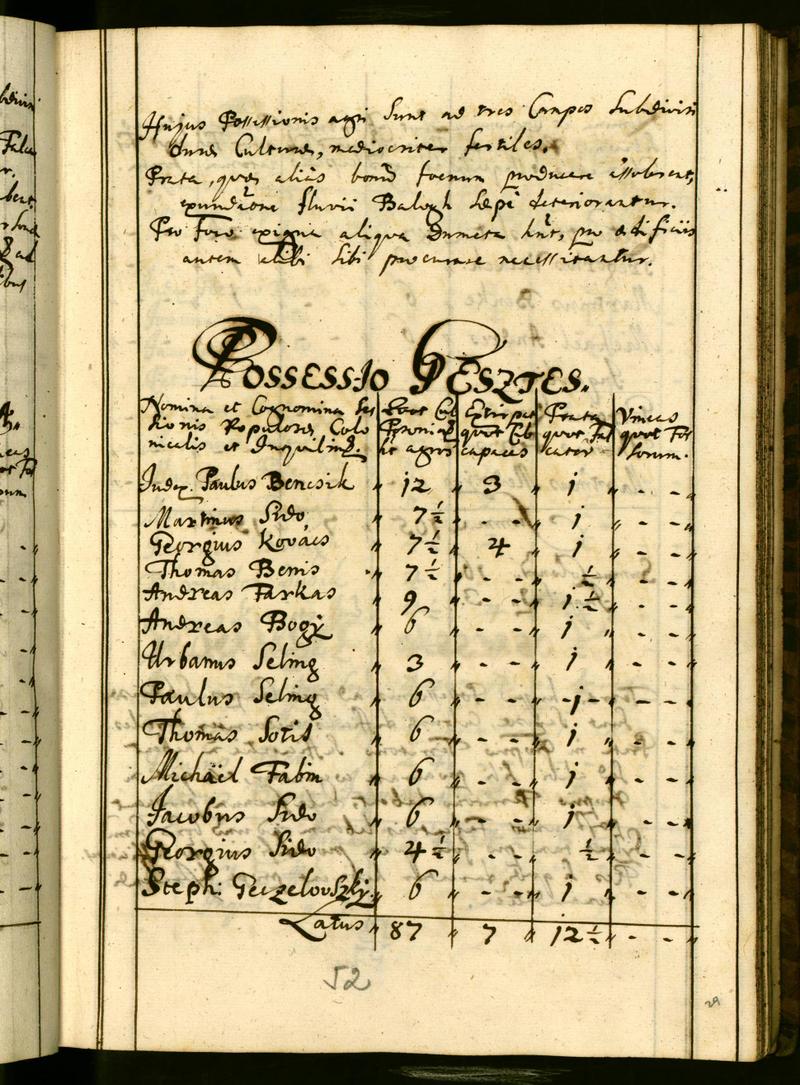 Hujus Possessionis agri Sunt ad tres Campos Subdivisi
duræ Culturæ, mediocriter fertiles.
Prata, quæ aliàs bonũ foenum producere solerent,
exundãone fluvii Balogh Sæpè deteriorantur.
Pro Foco exigua aliqua Dumeta hñt, pro ædificiis
autem alibi Sibi procurare necessitantur.
Possessio Gesztes.
Nomina et Cognomina Ses
sionis Populoræ Colo
nicalis et Inquilinæ.
Prata
quot Fal
cator
Vineas
quot Fos
Sorum.
Judex. Paulus Bencsik " 12 " 3 " 1 " - - "
Martinus Sido 7½ " - - " 1 " - - "
Georgius Kovács " 7½ " 4 " 1 " - - "
Thomas Benis " 7½ " - - " ½ " - - "
Andreas Farkas " 9 " - - " 1½ " - - "
Andreas Bogÿ " 6 " - - " 1 " - - "
Urbanus Seling " 3 " - - " 1 " - - "
Paulus Seling " 6 " - - " - 1 - " - - "
Thomas Sotis " 6 " - - " 1 " - - "
Michäel Fabin " 6 " - - " 1 " - - "
Jacobus Sido " 6 " - - " 1 " - - "
Georgius Sido " 4½ " - - " ½ " - - "
Steph: Geczelovszkÿ " 6 " - - " 1 " - - "
Latus " 87 " 7 " 12½ " - - "
52